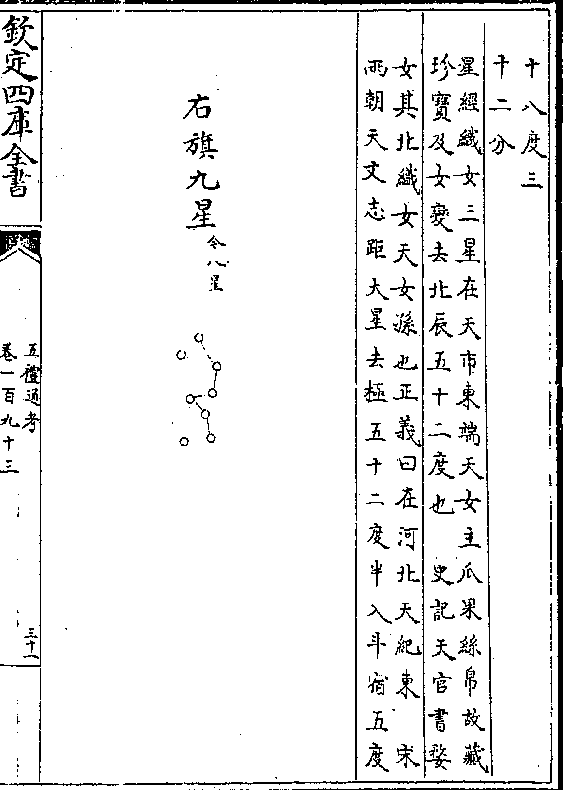 十八度三
十二分
星經織女三星在天市東端天女主瓜果絲帛故藏
珍寶及女變去北辰五十二度也　史記天官書婺
女其北織女天女孫也正義曰在河北天紀東　宋
兩朝天文志距大星去極五十二度半入斗宿五度
右旗九星今八星
欽定四庫全書
五禮通考
卷一百九十三
三十一